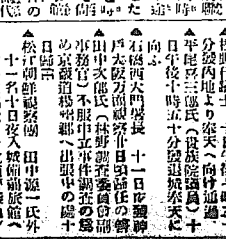 分發內地より奉天へ向け通過
▲平尾喜三郎氏(貴族院議員)十
日午後十時五十分發退城奉天に
向ふ
▲石橋西大門署長 十一日夜發神
戶大阪方面視察廿日頃歸任の筈
▲田中次郎氏(林野調査委員會副
事務官)不服申立事件調査の爲
め京畿道楊州郡へ出張中の處十
日歸任
▲松江朝鮮視察團 田中源一氏外
十一名十日夜入城備前旅館へ